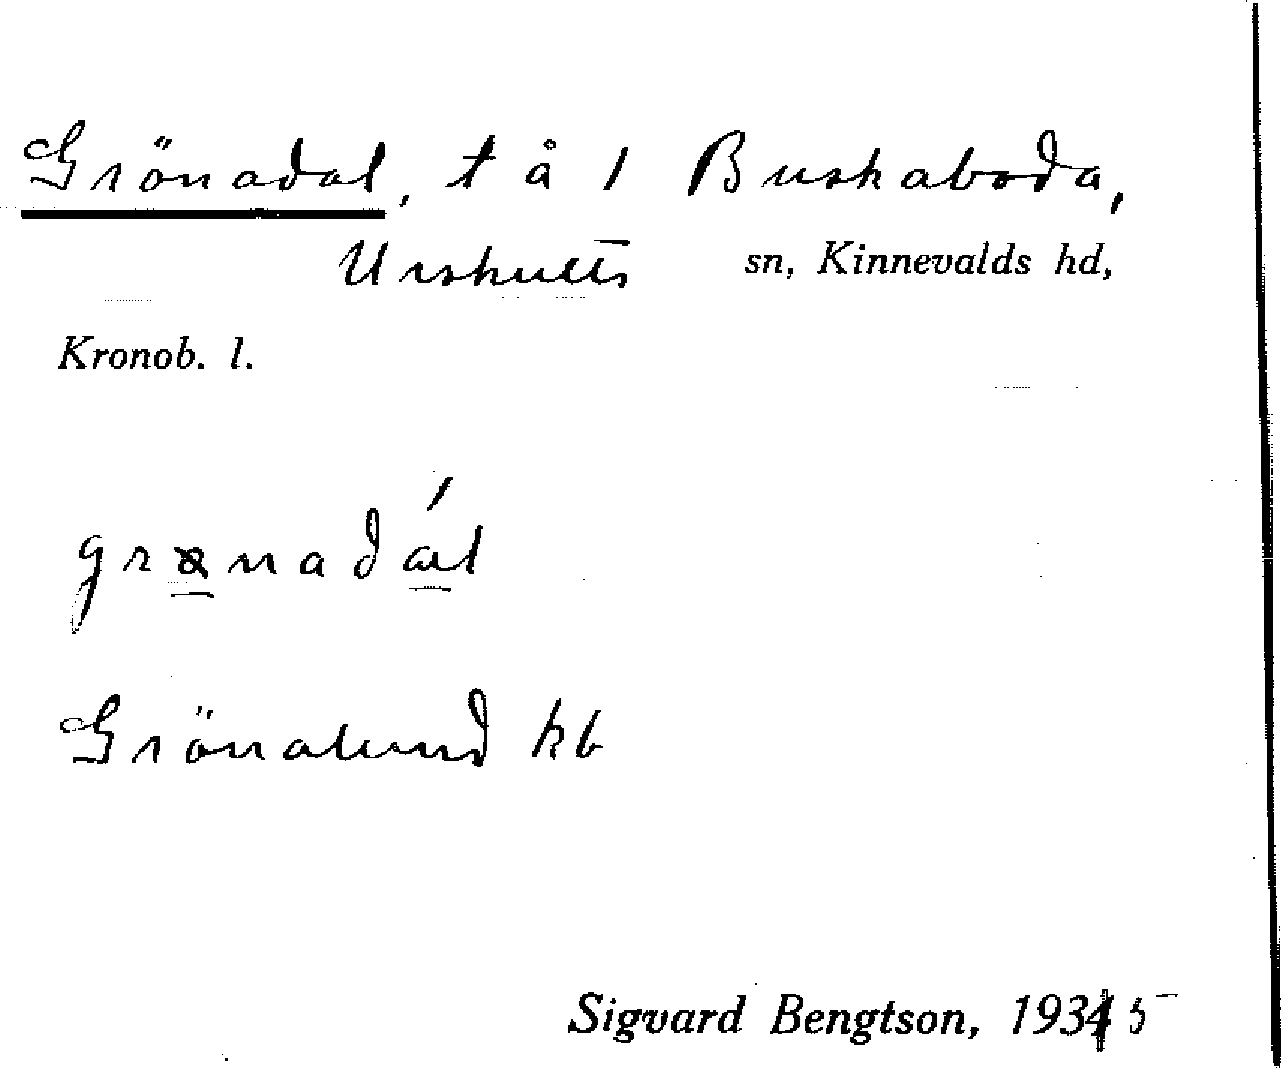 Grönadal, t å 1 Buskaboda,
Urshults sn, Kinnevalds hd,
Kronob. l.
Grönalund kb
Sigvard Bengtson, 1935